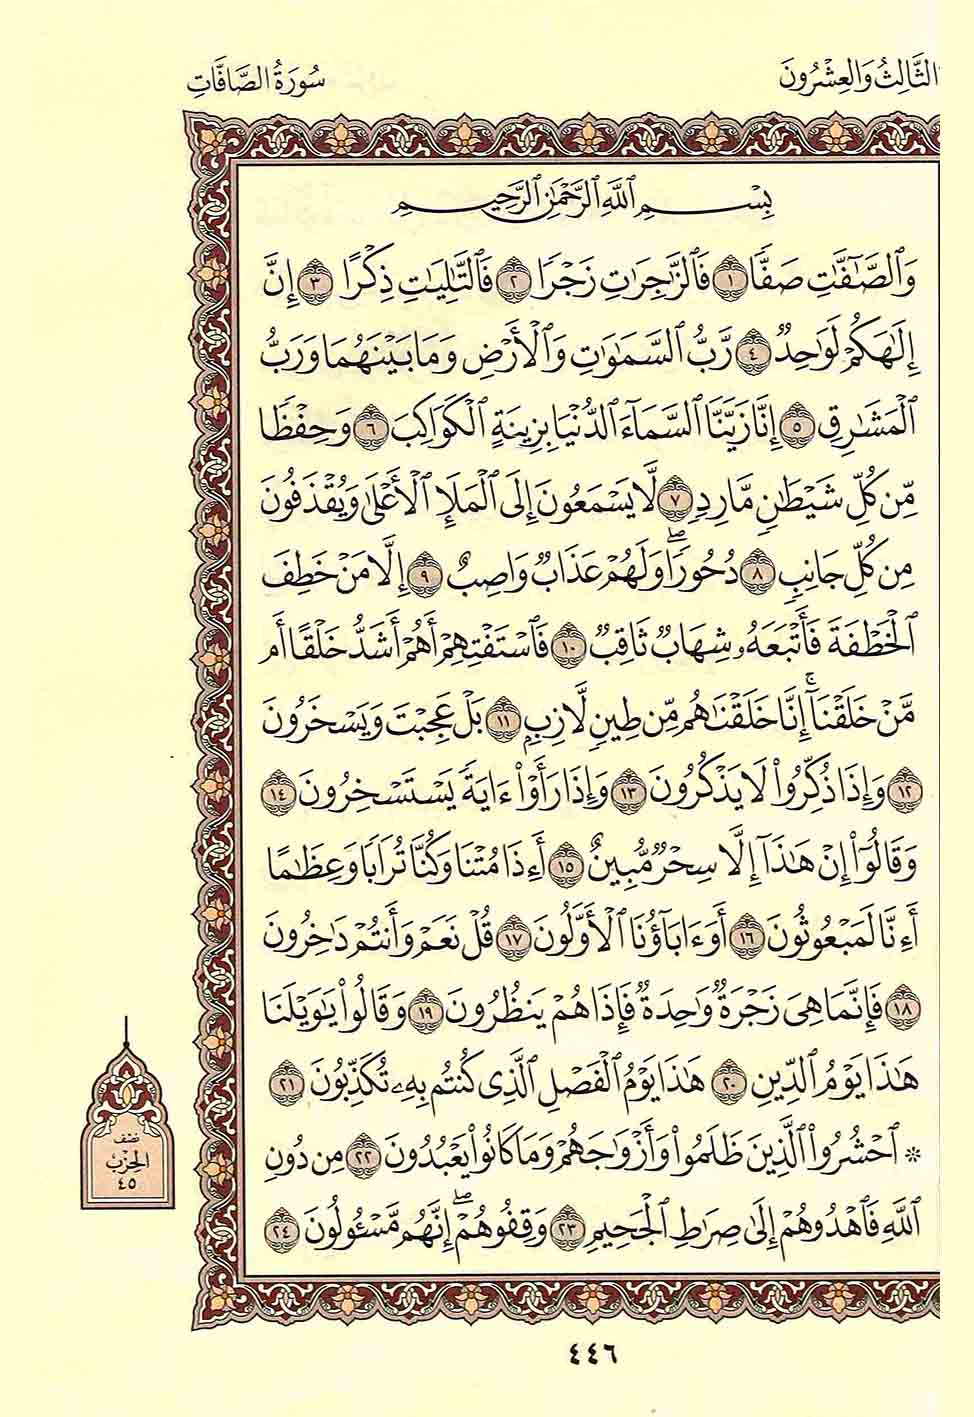 الثَّالِثُ وَالعِشْرُونَ
سُورَةُ الصَّافَّاتِ
بِسْمِ ٱللَّهِ ٱلرَّحْمَٰنِ ٱلرَّحِيمِ
وَٱلصَّٰٓفَّٰتِ صَفّٗا ١ فَٱلزَّٰجِرَٰتِ زَجۡرٗا ٢ فَٱلتَّٰلِيَٰتِ ذِكۡرًا ٣ إِنَّ
إِلَٰهَكُمۡ لَوَٰحِدٞ ٤ رَّبُّ ٱلسَّمَٰوَٰتِ وَٱلۡأَرۡضِ وَمَا بَيۡنَهُمَا وَرَبُّ
ٱلۡمَشَٰرِقِ ٥ إِنَّا زَيَّنَّا ٱلسَّمَآءَ ٱلدُّنۡيَا بِزِينَةٍ ٱلۡكَوَاكِبِ ٦ وَحِفۡظٗا
مِّن كُلِّ شَيۡطَٰنٖ مَّارِدٖ ٧ لَّا يَسۡمَعُونَ إِلَى ٱلۡمَلَإِ ٱلۡأَعۡلَىٰ وَيُقۡذَفُونَ
مِن كُلِّ جَانِبٖ ٨ دُحُورٗاۖ وَلَهُمۡ عَذَابٞ وَاصِبٌ ٩ إِلَّا مَنۡ خَطِفَ
ٱلۡخَطۡفَةَ فَأَتۡبَعَهُۥ شِهَابٞ ثَاقِبٞ ١٠ فَٱسۡتَفۡتِهِمۡ أَهُمۡ أَشَدُّ خَلۡقًا أَم
مَّنۡ خَلَقۡنَآۚ إِنَّا خَلَقۡنَٰهُم مِّن طِينٖ لَّازِبِۭ ١١ بَلۡ عَجِبۡتَ وَيَسۡخَرُونَ
١٢ وَإِذَا ذُكِّرُواْ لَا يَذۡكُرُونَ ١٣ وَإِذَا رَأَوۡاْ ءَايَةٗ يَسۡتَسۡخِرُونَ ١٤
وَقَالُوٓاْ إِنۡ هَٰذَآ إِلَّا سِحۡرٞ مُّبِينٌ ١٥ أَءِذَا مُتۡنَا وَكُنَّا تُرَابٗا وَعِظَٰمًا
أَءِنَّا لَمَبۡعُوثُونَ ١٦ أَوَءَابَآؤُنَا ٱلۡأَوَّلُونَ ١٧ قُلۡ نَعَمۡ وَأَنتُمۡ دَٰخِرُونَ
١٨ فَإِنَّمَا هِيَ زَجۡرَةٞ وَٰحِدَةٞ فَإِذَا هُمۡ يَنظُرُونَ ١٩ وَقَالُواْ يَٰوَيۡلَنَا
هَٰذَا يَوۡمُ ٱلدِّينِ ٢٠ هَٰذَا يَوۡمُ ٱلۡفَصۡلِ ٱلَّذِي كُنتُم بِهِۦ تُكَذِّبُونَ ٢١
* ٱحۡشُرُواْ ٱلَّذِينَ ظَلَمُواْ وَأَزۡوَٰجَهُمۡ وَمَا كَانُواْ يَعۡبُدُونَ ٢٢ مِن دُونِ
ٱللَّهِ فَٱهۡدُوهُمۡ إِلَىٰ صِرَٰطِ ٱلۡجَحِيمِ ٢٣ وَقِفُوهُمۡۖ إِنَّهُم مَّسۡـُٔولُونَ ٢٤
نصف
الحِزْب
٤٥
٤٤٦